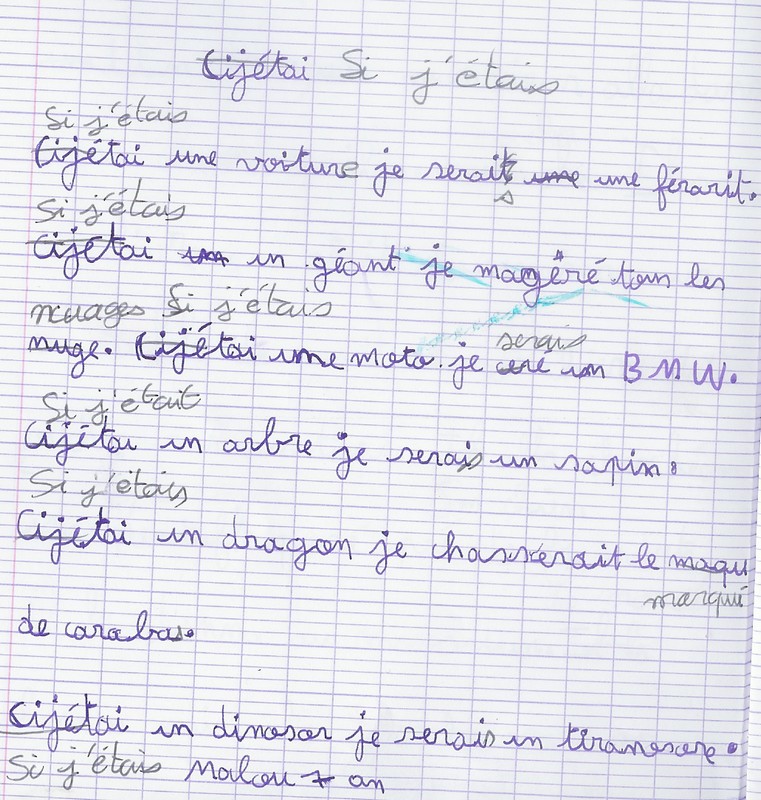 Cijétai Si j'étais
Si j'étais
Cijétai une voiture je serait s une une férarit.
Si j'étais
Cijétai un in géant je magéré tous les
nuages Si j'étais serais
nuge. Cijétai une moto. je ceré un BMW.
Si j'était
Cijétai in arbre je serais un sapin.
Si j'étais
Cijétai in dragon je chasserait le maqu
marqui
de carabas.
Cijétai in dinosor je serais in tiranosore.
Si j'étais Malou + an